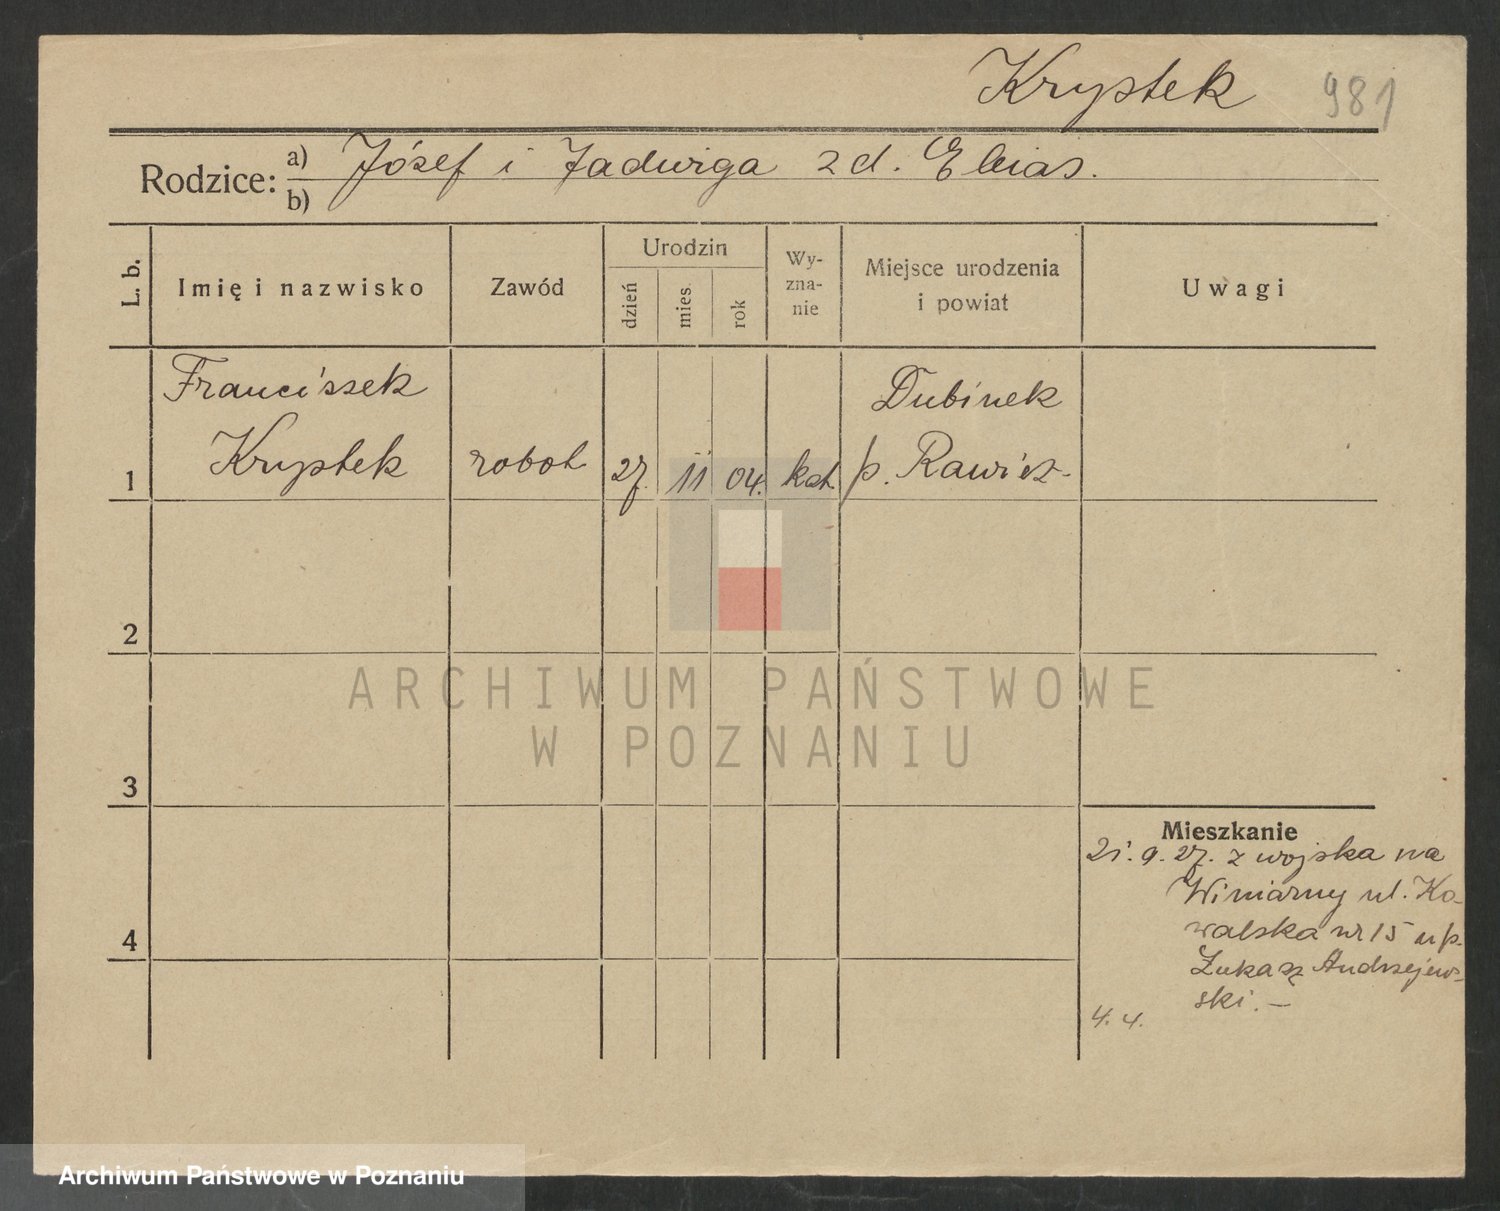 Krystek 981
Rodzice: a) Józef i Jadwiga zd. Elias.
b)
L. b. Imię i nazwisko Zawód Urodzin dzień mies. rok Wy-zna-nie Miejsce urodzenia i powiat Uwagi
Franciszek Dubinek
1 Krystek robot. 27. 11 04. kat. p. Rawicz-
2
ARCHIWUM PAŃSTWOWE
W POZNANIU
3
Mieszkanie
21. 9. 27. z wojska na
Winiarny ul. Ko-
walska nr 15 u p.
4
Łukasz Andrzejew-
ski. –
4. 4.
Archiwum Państwowe w Poznaniu